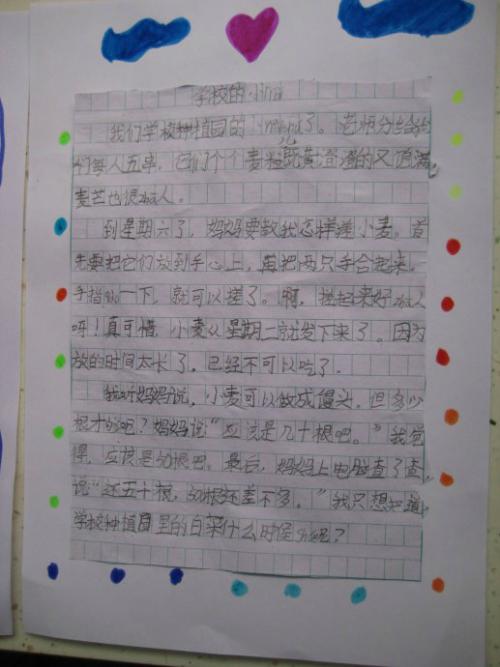 学校的小mai
我们学校种植园的小mai shu了。老师分给我
们每人五串,它们个个麦粒既黄澄澄的又饱满,
麦芒也很za人。
到星期六了,妈妈要教我怎样搓小麦。首
先要把它们放到手心上,再把两只手合起来,
手指一下,就可以搓了。啊,搓起来好za人
呀!真可惜,小麦从星期二就发下来了。因为
放的时间太长了,已经不可以吃了。
我听妈妈说,小麦可以做成馒头,但多少
根才够呢?妈妈说“应该是几十根吧。”我觉
得,应该是50根吧。最后,妈妈上电脑查了查,
说“还五十根,50根还差不多。”我只想知道,
学校种植园里的白菜什么时候shu呢?